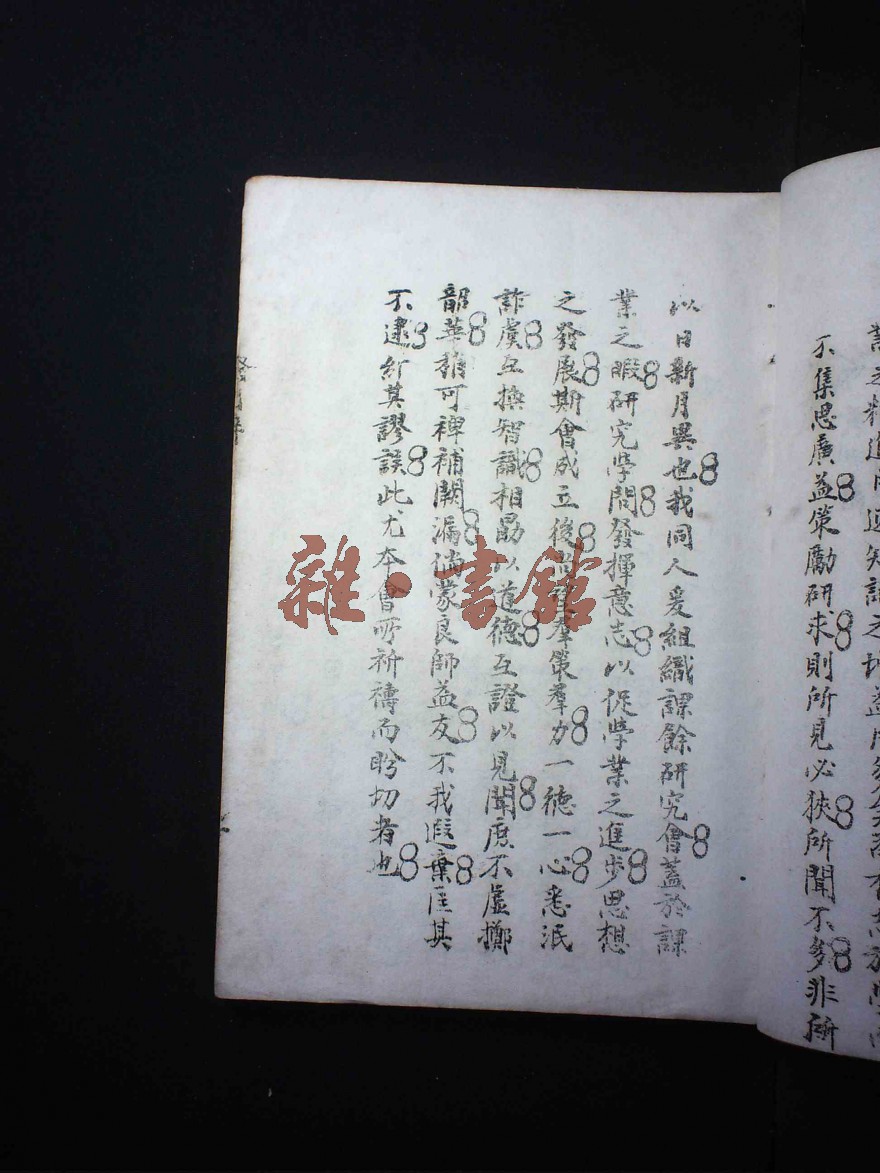 不集思廣益策勵研求則所見必狹所聞不多非所
以日新月異也我同人爰組織課餘研究會蓋於課
業之暇研究學問發揮意志以促學業之進步思想
之發展期會成立後羣策羣力一德一心悉泯
詐虞互換智識相勗以道德互證以見聞庶不虛擲
韶華稍可裨補闕漏倘蒙良師益友不我遐棄匡其
不逮糾其謬誤此尤本會所祈禱而盼切者也
雜·書館